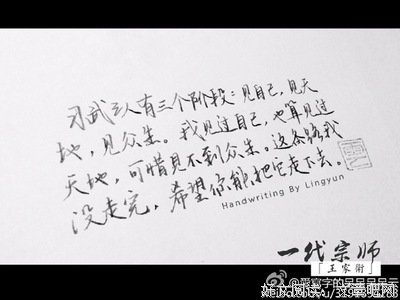 习武之人有三个阶段：见自己，见天
地，见众生。我见过自己，也算见过
天地，可惜见不到众生。这条路我
没走完，希望你能把它走下去。
Handwriting By Lingyun
一代宗师
「王家衛」